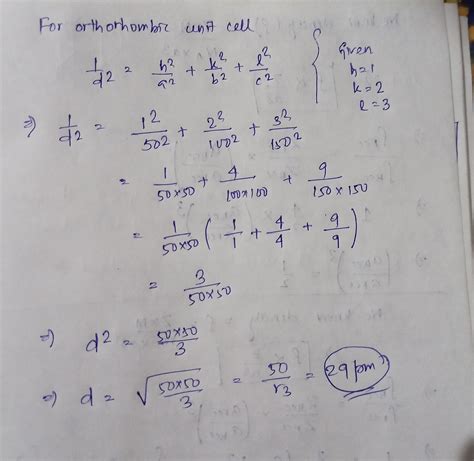 For orthorhombic unit cell
1/d2 = h²/a² + k²/b² + l²/c²
Given
h=1
k=2
l=3
⇒ 1/d2 = 1²/50² + 2²/100² + 3²/150²
= 1/50×50 + 4/100×100 + 9/150×150
= 1/50×50 ( 1/1 + 4/4 + 9/9 )
= 3/50×50
⇒ d² = 50×50/3
⇒ d = √50×50/3 = 50/√3 = 29pm